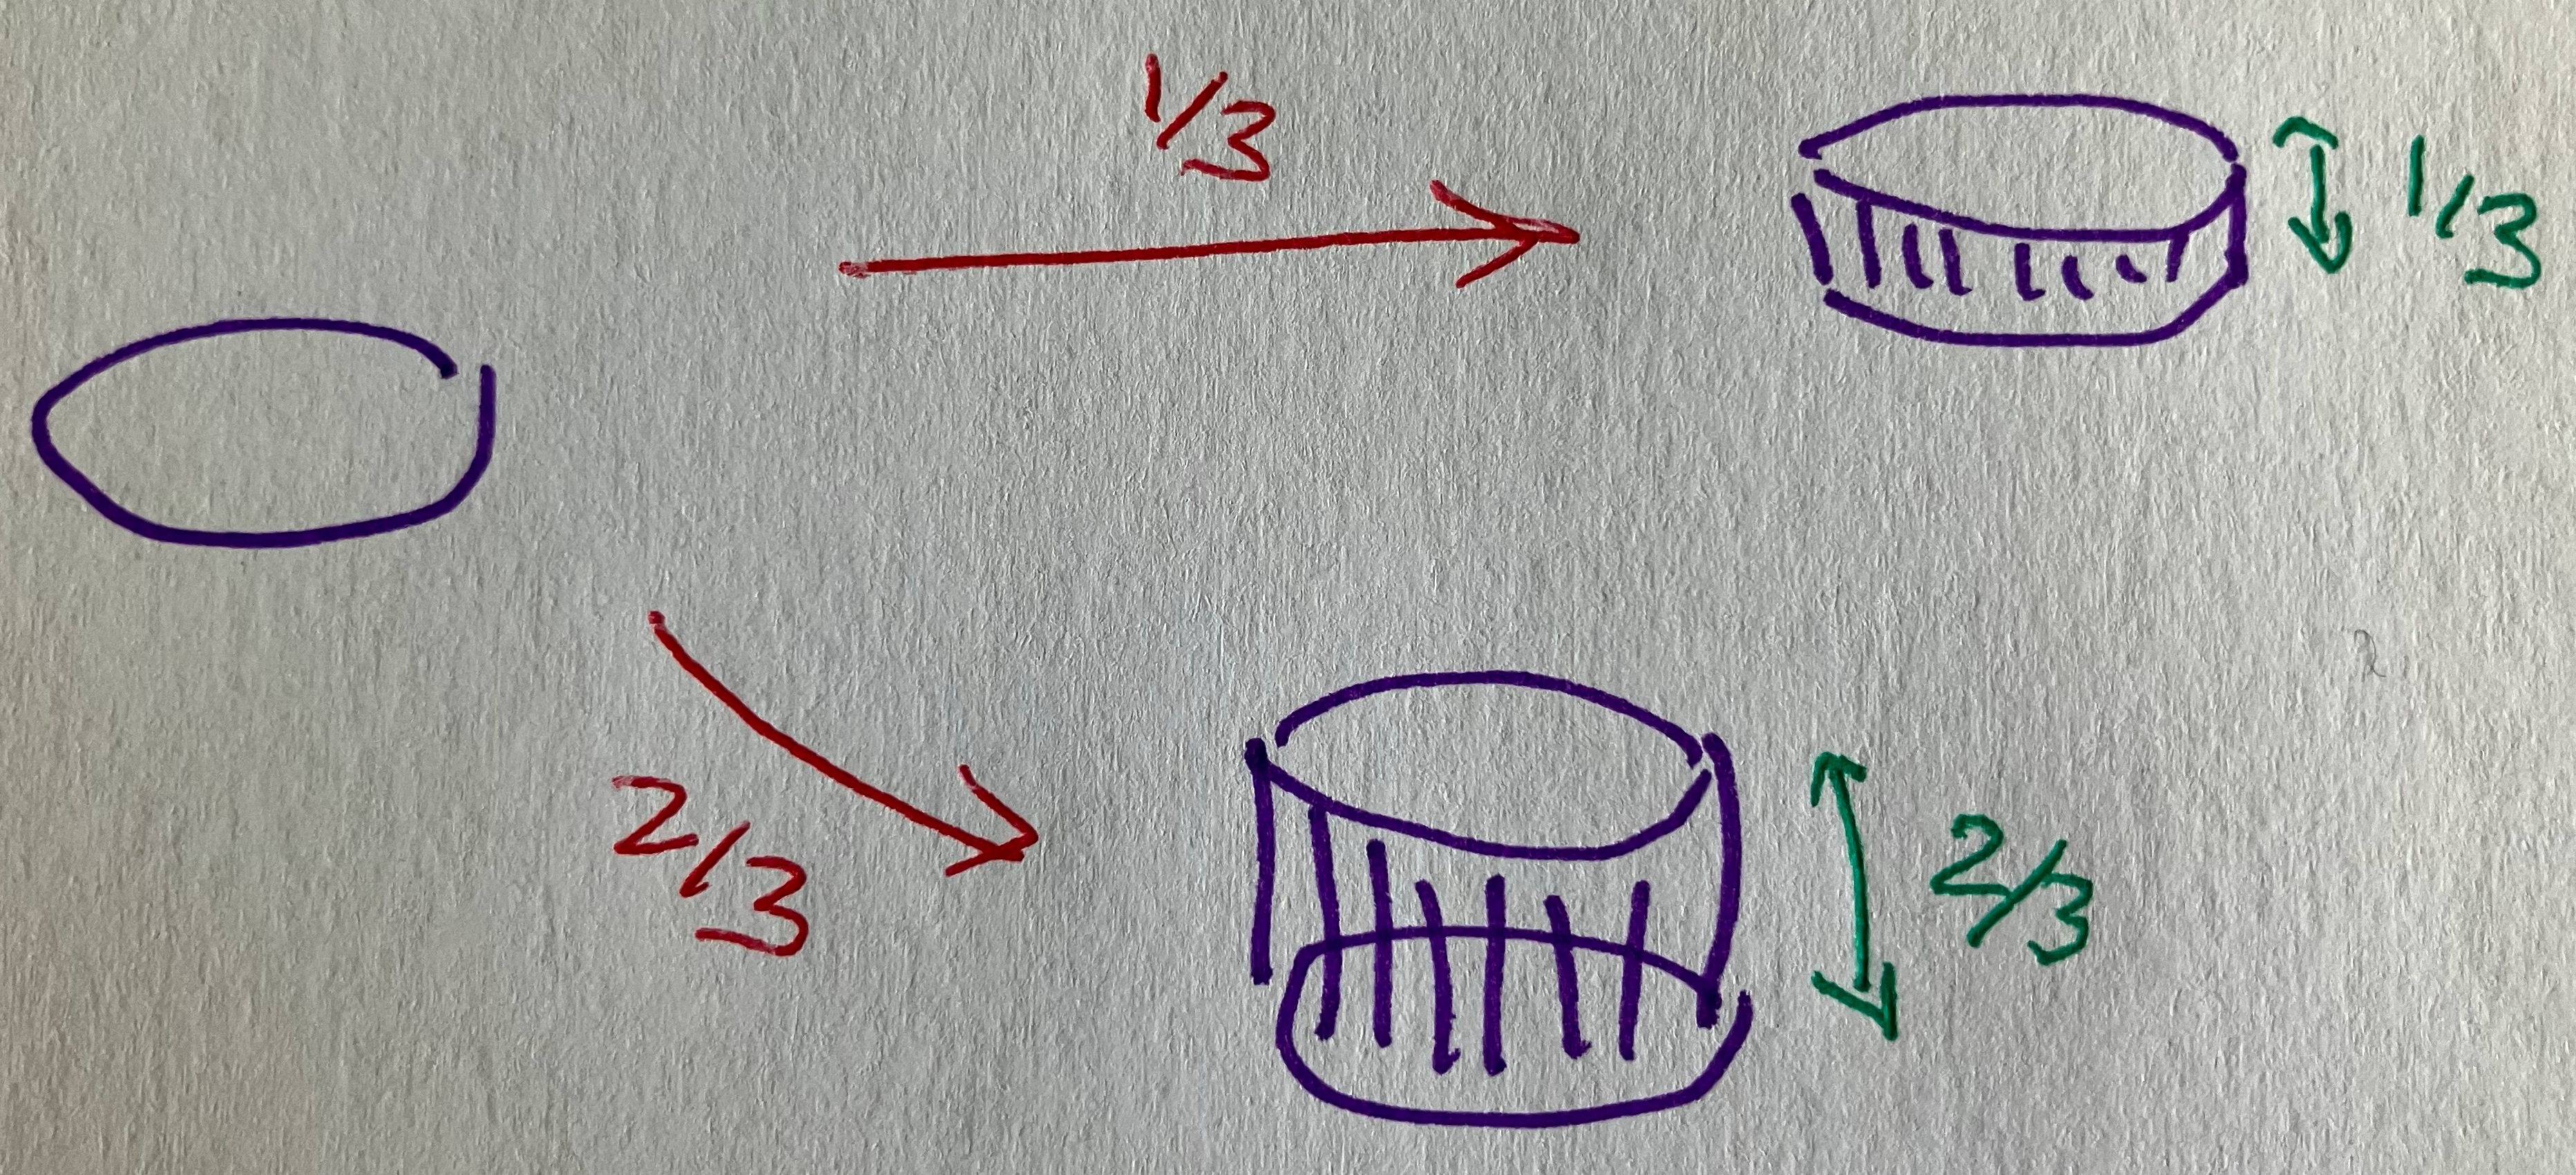 1/3
1/3
2/3
2/3